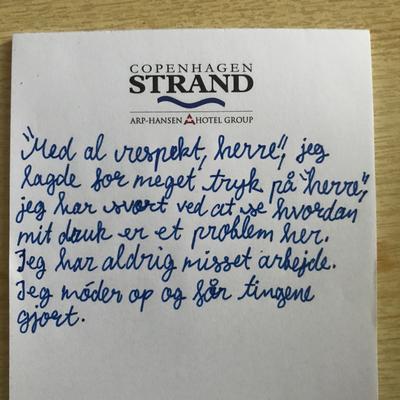 COPENHAGEN
STRAND
ARP-HANSEN HOTEL GROUP
"Med al respekt, herre", jeg
lagde for meget tryk på "herre",
jeg har svært ved at se hvordan
mit druk er et problem her.
Jeg har aldrig misset arbejde.
Jeg møder op og får tingene
gjort.